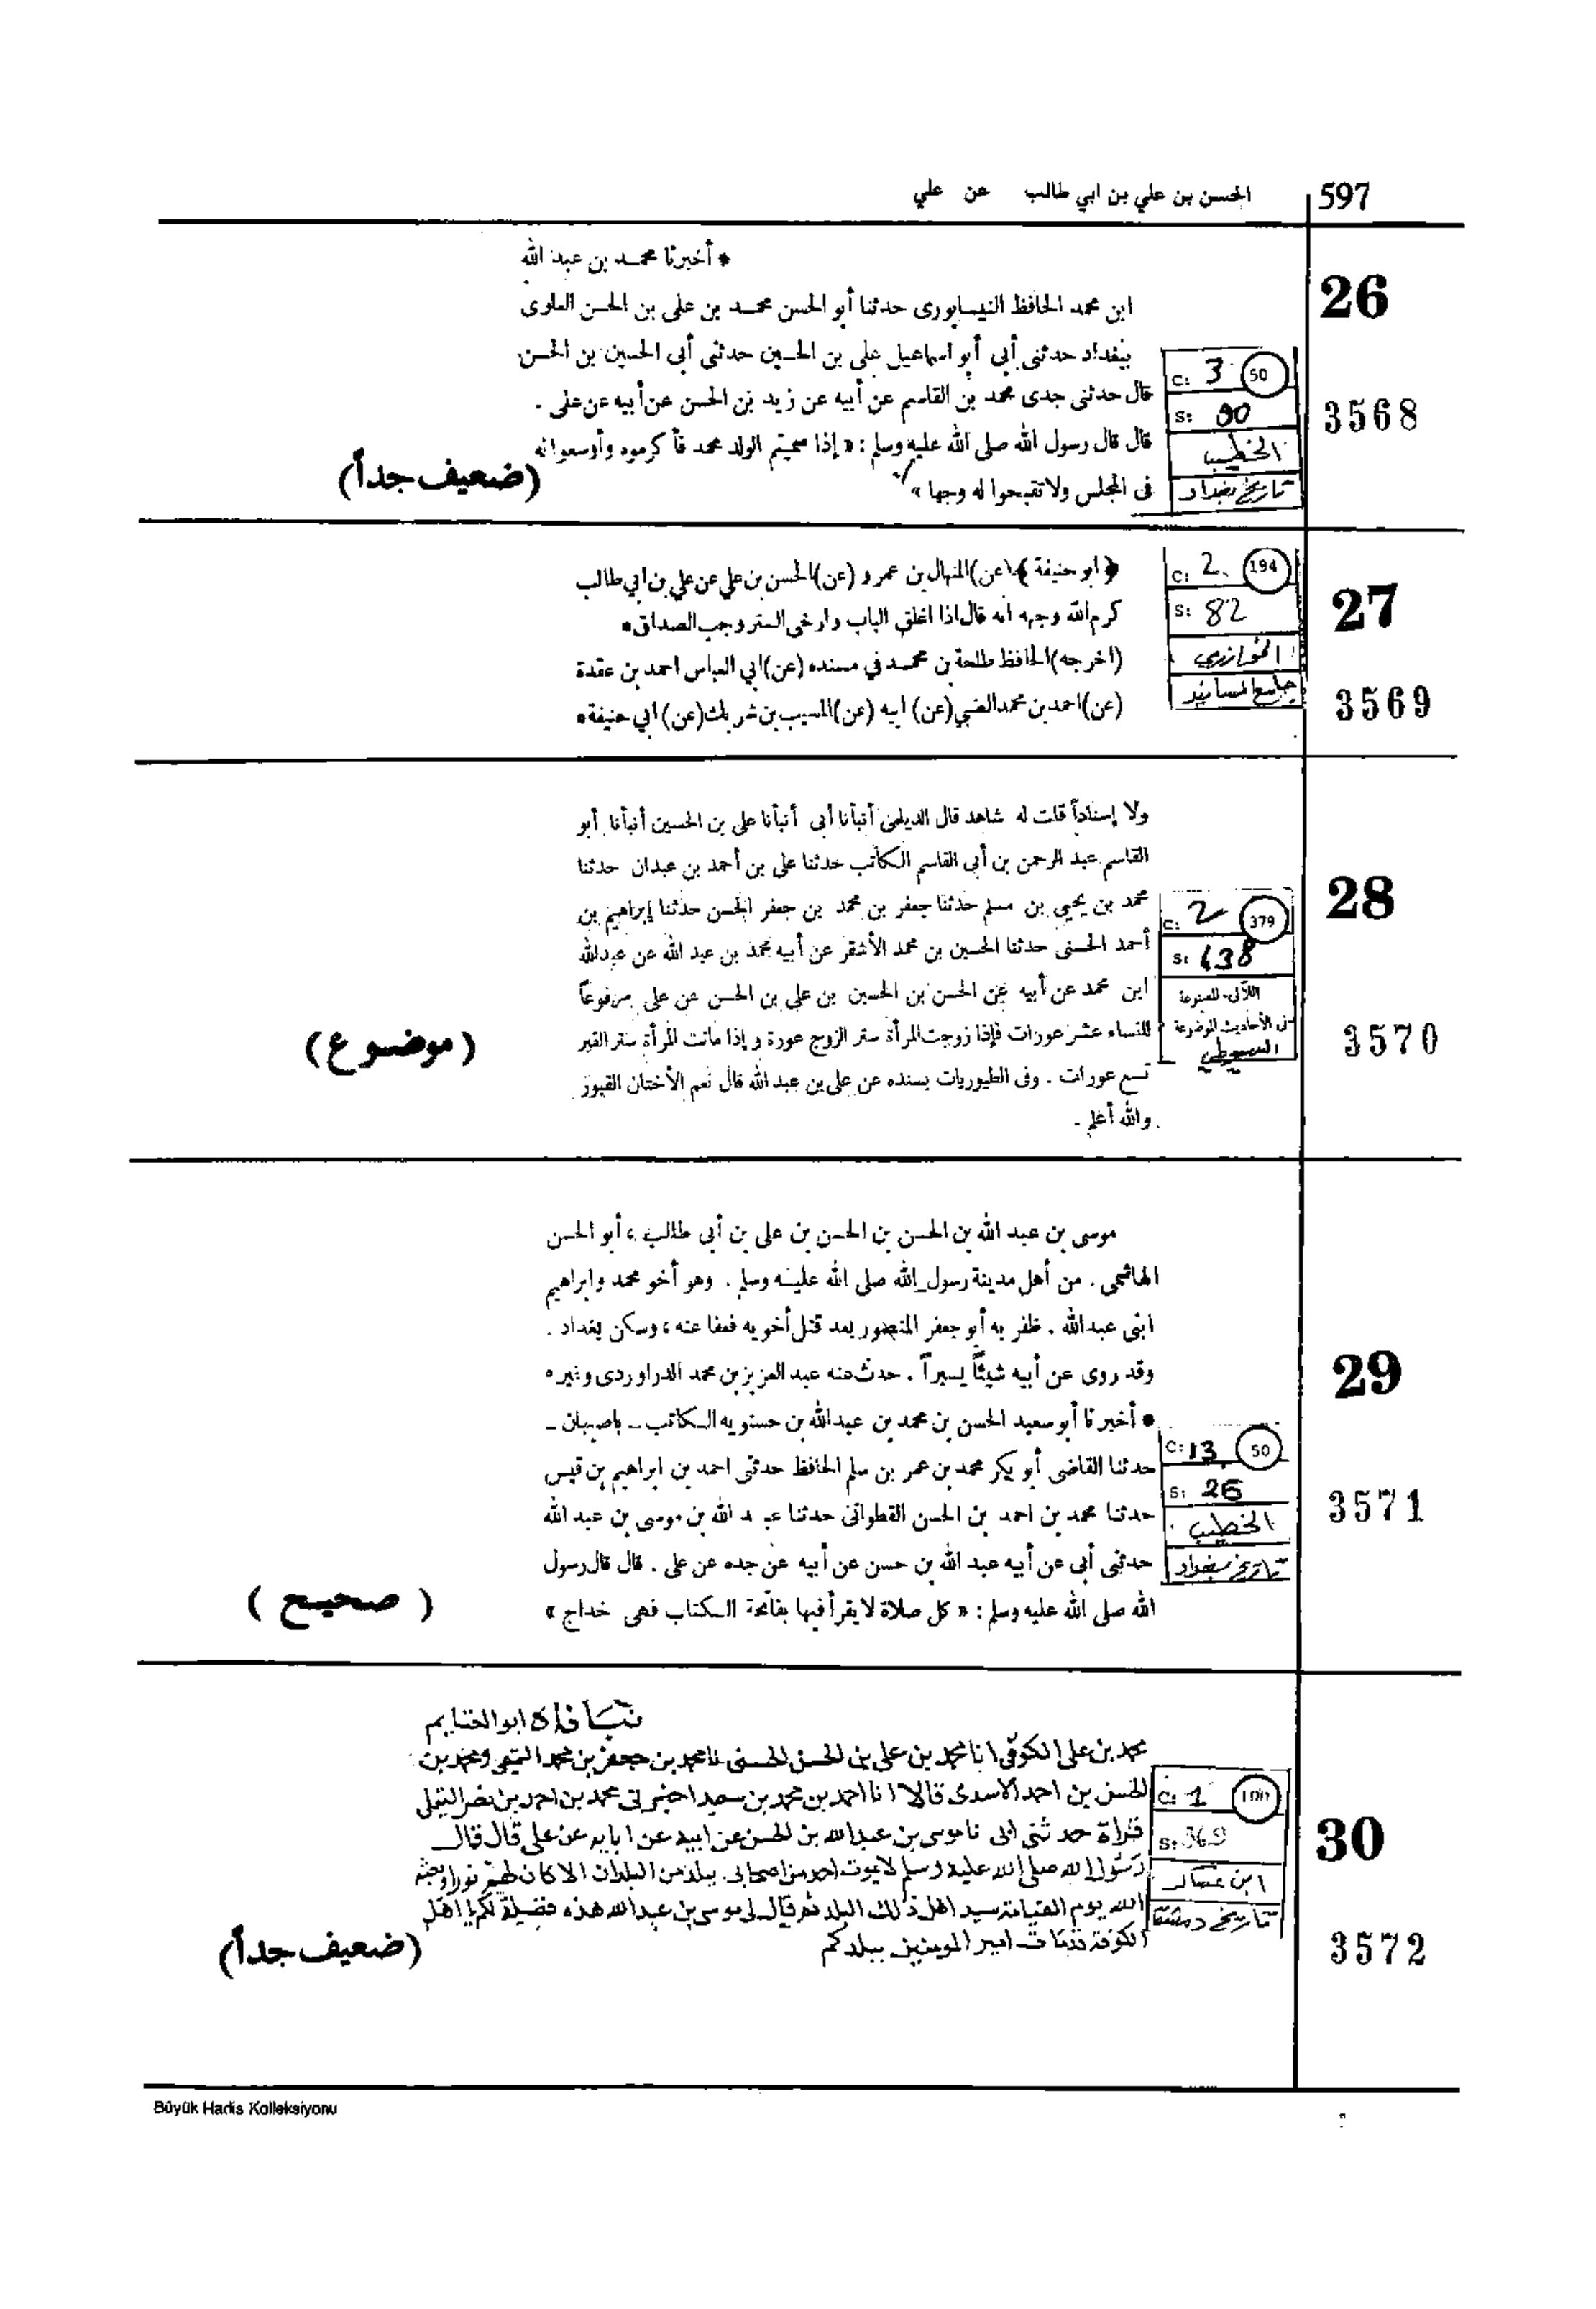 597
الحسن بن علي بن ابي طالب عن علي
26
3568
C: 3 50
S: 90
الخطيب
تاريخ بغداد
* أخبرنا محمد بن عبد الله
ابن محمد الحافظ النيسابورى حدثنا أبو الحسن محمد بن على بن الحسن العلوى
ببغداد حدثنى أبى أبو اسماعيل على بن الحسين حدثنى أبى الحسين بن الحسن
قال حدثنى جدى محمد بن القاسم عن أبيه عن زيد بن الحسن عن أبيه عن على .
قال قال رسول الله صلى الله عليه وسلم : « إذا سميتم الولد محمد فأ كرموه وأوسعوا له
فى المجلس ولا تقبحوا له وجها »
(ضعيف جداً)
27
3569
C: 2 194
S: 82
الخوارزمي
جامع المسانيد
﴿ ابو حنيفة ﴾ (عن) المنهال بن عمرو (عن) الحسن بن علي عن علي بن ابي طالب
كرم الله وجهه انه قال اذا اغلق الباب وارخى الستر وجب الصداق *
(اخرجه) الحافظ طلحة بن محمد في مسنده (عن) ابي العباس احمد بن عقدة
(عن) احمد بن محمد الضبي (عن) ابيه (عن) المسيب بن شريك (عن) ابي حنيفة *
28
3570
C: 2 379
S: 438
اللآلىء المصنوعة
فى الأحاديث الموضوعة
السيوطي
ولا إسناداً قلت له شاهد قال الديلمى أنبأنا أبى أنبأنا على بن الحسين أنبأنا أبو
القاسم عبد الرحمن بن أبى القاسم الكاتب حدثنا على بن أحمد بن عبدان حدثنا
محمد بن يحيى بن مسلم حدثنا جعفر بن محمد بن جعفر الحسن حدثنا إبراهيم بن
أحمد الحسنى حدثنا الحسين بن محمد الأشقر عن أبيه محمد بن عبد الله عن عبدالله
ابن محمد عن أبيه عن الحسن بن الحسين بن على بن الحسن عن على مرفوعاً
للنساء عشر عورات فإذا زوجت المرأة ستر الزوج عورة وإذا ماتت المرأة ستر القبر
تسع عورات . وفى الطيوريات بسنده عن على بن عبد الله قال نعم الأختان القبور
والله أعلم .
(موضوع)
29
3571
C: 13 50
S: 26
الخطيب
تاريخ بغداد
موسى بن عبد الله بن الحسن بن الحسن بن على بن أبى طالب ، أبو الحسن
الهاشمى . من أهل مدينة رسول الله صلى الله عليه وسلم . وهو أخو محمد وابراهيم
ابنى عبدالله . ظفر به أبو جعفر المنصور بعد قتل أخويه فعفا عنه ، وسكن بغداد .
وقد روى عن أبيه شيئاً يسيراً . حدث عنه عبد العزيز بن محمد الدراوردى وغيره
* أخبرنا أبو سعيد الحسن بن محمد بن عبدالله بن حسنويه الكاتب ـ باصبهان ـ
حدثنا القاضى أبو بكر محمد بن عمر بن سلم الحافظ حدثنى احمد بن ابراهيم بن قيس
حدثنا محمد بن احمد بن الحسن القطوانى حدثنا عبد الله بن موسى بن عبد الله
حدثنى أبى عن أبيه عبد الله بن حسن عن أبيه عن جده عن على . قال قال رسول
الله صلى الله عليه وسلم : « كل صلاة لا يقرأ فيها بفاتحة الكتاب فهى خداج »
( صحيح )
30
3572
C: 1
S: 369
ابن عساكر
تاريخ دمشق
ابو الغنايم
محمد بن على الكوفى انا محمد بن على بن الحسن الحسنى نا محمد بن جعفر بن محمد التميمى ومحمد بن
الحسن بن احمد الاسدى قالا انا احمد بن محمد بن سعيد اخبرنى محمد بن احمد بن نصر التيملى
قراة حدثنى ابى نا موسى بن عبد الله بن الحسن عن ابيه عن ابايه عن على قال قال
رسول الله صلى الله عليه وسلم لا يموت احد من اصحابى ببلد من البلدان الا كان لهم نورا وبعثه
الله يوم القيامة سيد اهل ذلك البلد ثم قال لى موسى بن عبد الله هذه فضيلة لكم يا اهل
الكوفة قد مات امير المومنين ببلدكم
(ضعيف جداً)
Büyük Hadis Kolleksiyonu